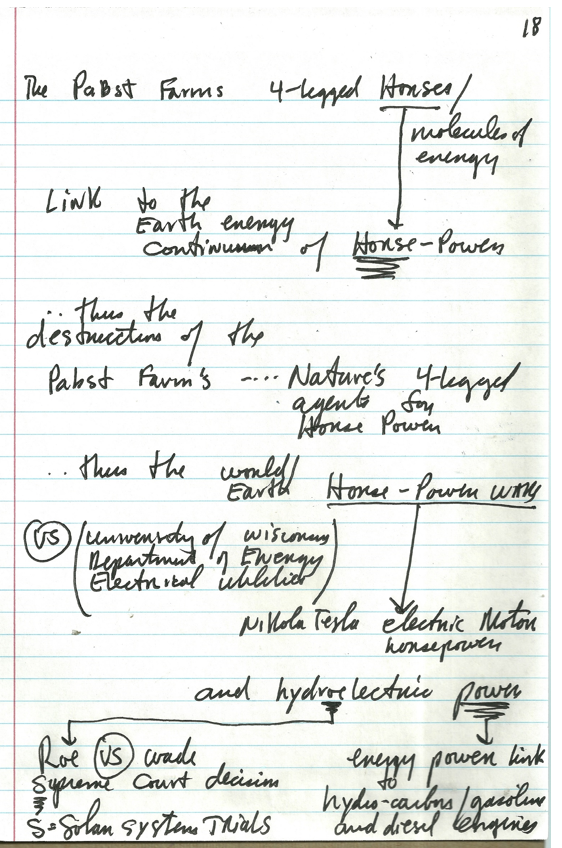 18
The Pabst Farms 4-legged Horses/
molecules of
energy
Link to the
Earth energy
Continuum of Horse-Power
.. thus the
destruction of the
Pabst Farm's ---- Nature's 4-legged
agents for
Horse Power
.. thus the world/
Earth Horse-Power wars
VS (University of Wisconsin
Department of Energy
Electrical utilities)
Nikola Tesla electric Motor
horsepower
and hydroelectric power
Roe VS wade
Supreme Court decision
S = Solar systems Trials
energy power link
to
hydro-carbons/gasoline
and diesel engines